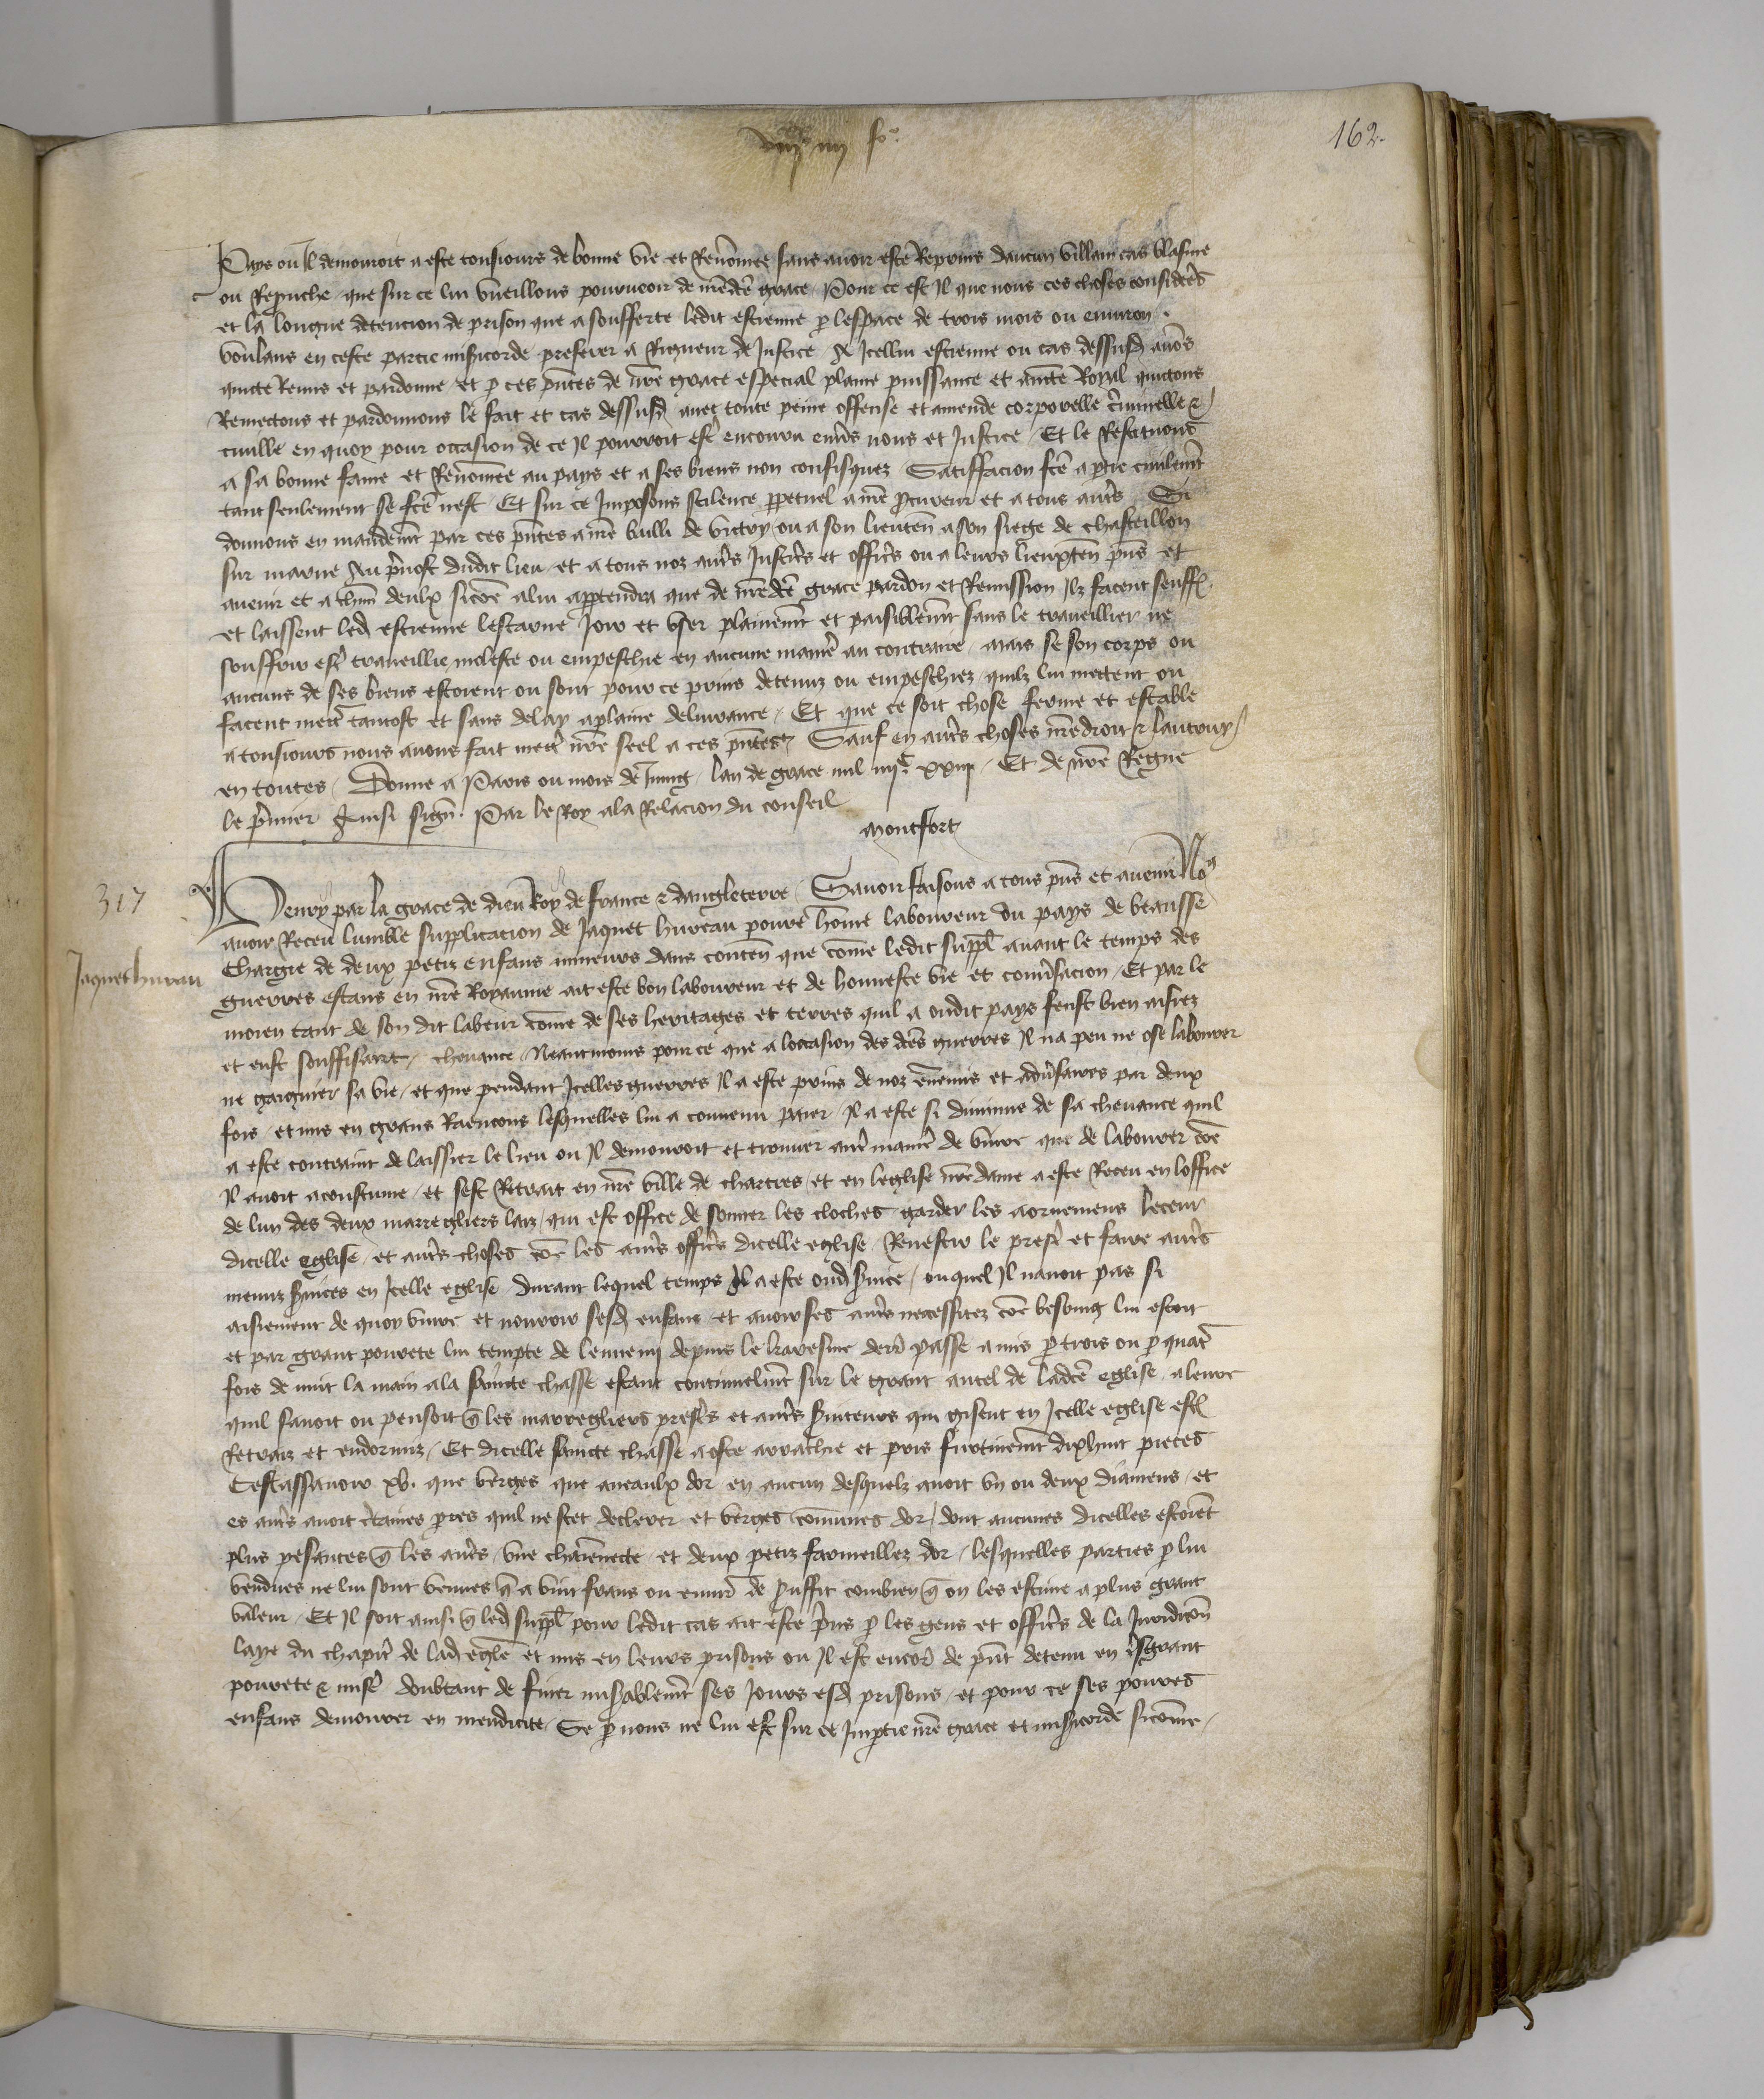 162.
Pays ou Il demouroit a este tousiours de bonne vie et Renōmee sans auoir este Reprins daucun villain cas blasme
ou Repruche que sur ce lui vueillons pourueoir de nr̄edc̄e grace Pour ce est Il que nous ces choses consider̄s
et la longue detencion de prison que a soufferte ledit estienne ꝑ lespace de trois mois ou enuiron .
voulans en ceste partie miſ̄icorde preferer a Rigueur de Justice A Icellui estienne ou cas dessusd auōs
quicte Remis et pardonne et ꝑ ces pn̄tes de nr̄e grace especial plaine puissance et aucte Royal quictons
Remectons et pardonnons le fait et cas dessusd auec toute peine offense et amende corporelle cr̄iminelle &
ciuille en quoy pour occasion de ce Il pourroit estr̄ encouru enuers nous et Justice Et le Restituons
a sa bonne fame et Renōmee au pays et a ses biens non confisquez Satiffacion fc̄e a ꝑtie ciuilemt̄
tant seulement se fc̄e nest Et sur ce Imposons scilence ꝑpetuel a nr̄e ꝓcureur et a tous autr̄s Si
donnons en mandemt̄ par ces pn̄tes a nr̄e bailli de victry ou a son lieuten̄ a son siege de chasteillon
sur marne Au pr̄uost dudit lieu et a tous noz autr̄s Justicr̄s et officr̄s ou a leurs lieuxten̄ pn̄s et
auenir et a chūn deulx sicōe a lui appartendra que de nr̄edc̄e grace pardon et Remission Ilz facent seuffr̄
et laissent led estienne lescarne Joir et vser plainemt̄ et paisiblemt̄ sans le traueillier ne
souffrir estr̄ traueillie moleste ou empeschie en aucune manier̄ au contraire mais se son corps ou
aucuns de ses biens estoient ou sont pour ce prins detenuz ou empeschiez quilz lui mettent ou
facent mectr̄ tantost et sans delay a plaine deliurance Et que ce soit chose ferme et estable
a tousiours nous auons fait mectr̄ nr̄e seel a ces pn̄tes Sauf en autr̄s choses nr̄e droit & lautruy
en toutes Donne a Paris ou mois de Juing lan de grace mil iiijc xxiij Et de nr̄e Regne
le pr̄mier Ainsi sign̄ . Par le Roy a la Relacion du conseil
montfort
317
Henry par la grace de dieu Roy de france & dangleterre Sauoir faisons a tous pn̄s et auenir No9
Jaquet hureau
auoir Receu lumble supplicacion de Jaquet hureau poure hōme laboureur du pays de beausse
chargie de deux petiz enfans mineurs dans conten̄ que cōme ledit suppl̄ auant le temps des
guerres estans en nr̄e Royaume ait este bon laboureur et de honneste vie et conuersacion Et par le
moien tant de son dit labeur cōme de ses heritages et terres quil a oudit pays feust bien aisiez
et eust souffisant cheuance Neantmoins pour ce que a loccasion des dc̄es guerres Il na peu ne ose labourer
ne gaignier sa vie et que pendant Icelles guerres Il a este prins de noz ēnemis et aduersaires par deux
fois et mis en grans Raencons lesquelles lui a conuenu paier Il a este si diminue de sa cheuance quil
a este contraint de laissier le lieu ou Il demouroit et trouuer autr̄ manier̄ de viure que de labourer cōe
Il auoit acoustume et sest Retrait en nr̄e ville de chartres et en leglise nr̄e dame a este Receu en loffice
de lun des deux marregliers laiz qui est office de sonner les cloches garder les aornemens leceur
dicelle eglise et autr̄s choses cōe les autr̄s officr̄s dicelle eglise Reuestir le prestr̄ et faire autr̄s
menuz ſ̄uices en Icelle eglise durant lequel temps Il a este oud ſ̄uice ouquel Il nauoit pas si
aisiement de quoy viure et nourrir sesd enfans et auoir ses autr̄s necessitez cōe besoing lui estoit
et par grant pourete lui tempte de lennemy depuis le karesme dern̄ passe a mis ꝑ trois ou ꝑ quatr̄
fois de nuit la main a la saincte chasse estant continuelmt̄ sur le grant autel de ladc̄e eglise a leure
quil sauoit ou pensoit q̄ les marregliers prestr̄s et autr̄s ſ̄uiteurs qui gisent en Icelle eglise estr̄
Retraiz et endormiz Et dicelle saincte chasse a oste arrachie et pris furtiuemt̄ dixhuit pieces
Cestassauoir xv. que verges que aneaulx dor en aucun desquelz auoit vn ou deux diamens et
es autr̄s auoit cr̄taines pr̄res quil ne scet declerer et verges cōmunes dor dont aucunes dicelles estoiēt
plus pesantes q̄ les autr̄s vne chaiennecte et deux petiz fermeillez dor lesquelles parties ꝑ lui
vendues ne lui sont venues q̄ a vint frans ou enuir̄ de ꝓuffit combien q̄ on les estime a plus grant
valeur Et Il soit ainsi q̄ led suppl̄ pour ledit cas ait este prins ꝑ les gens et officr̄s de la Juridicōn
laye du chapitr̄ de lad egl̄e et mis en leurs prisons ou Il est encor̄ de pn̄t detenu en tr̄sgrant
pourete & miser̄ doubtant de finer miſ̄ablemt̄ ses Jours esd prisons et pour ce ses poures
enfans demourer en mendicite Se ꝑ nous ne lui est sur ce Imꝑtie nr̄e grace et miſ̄icorde sicōme